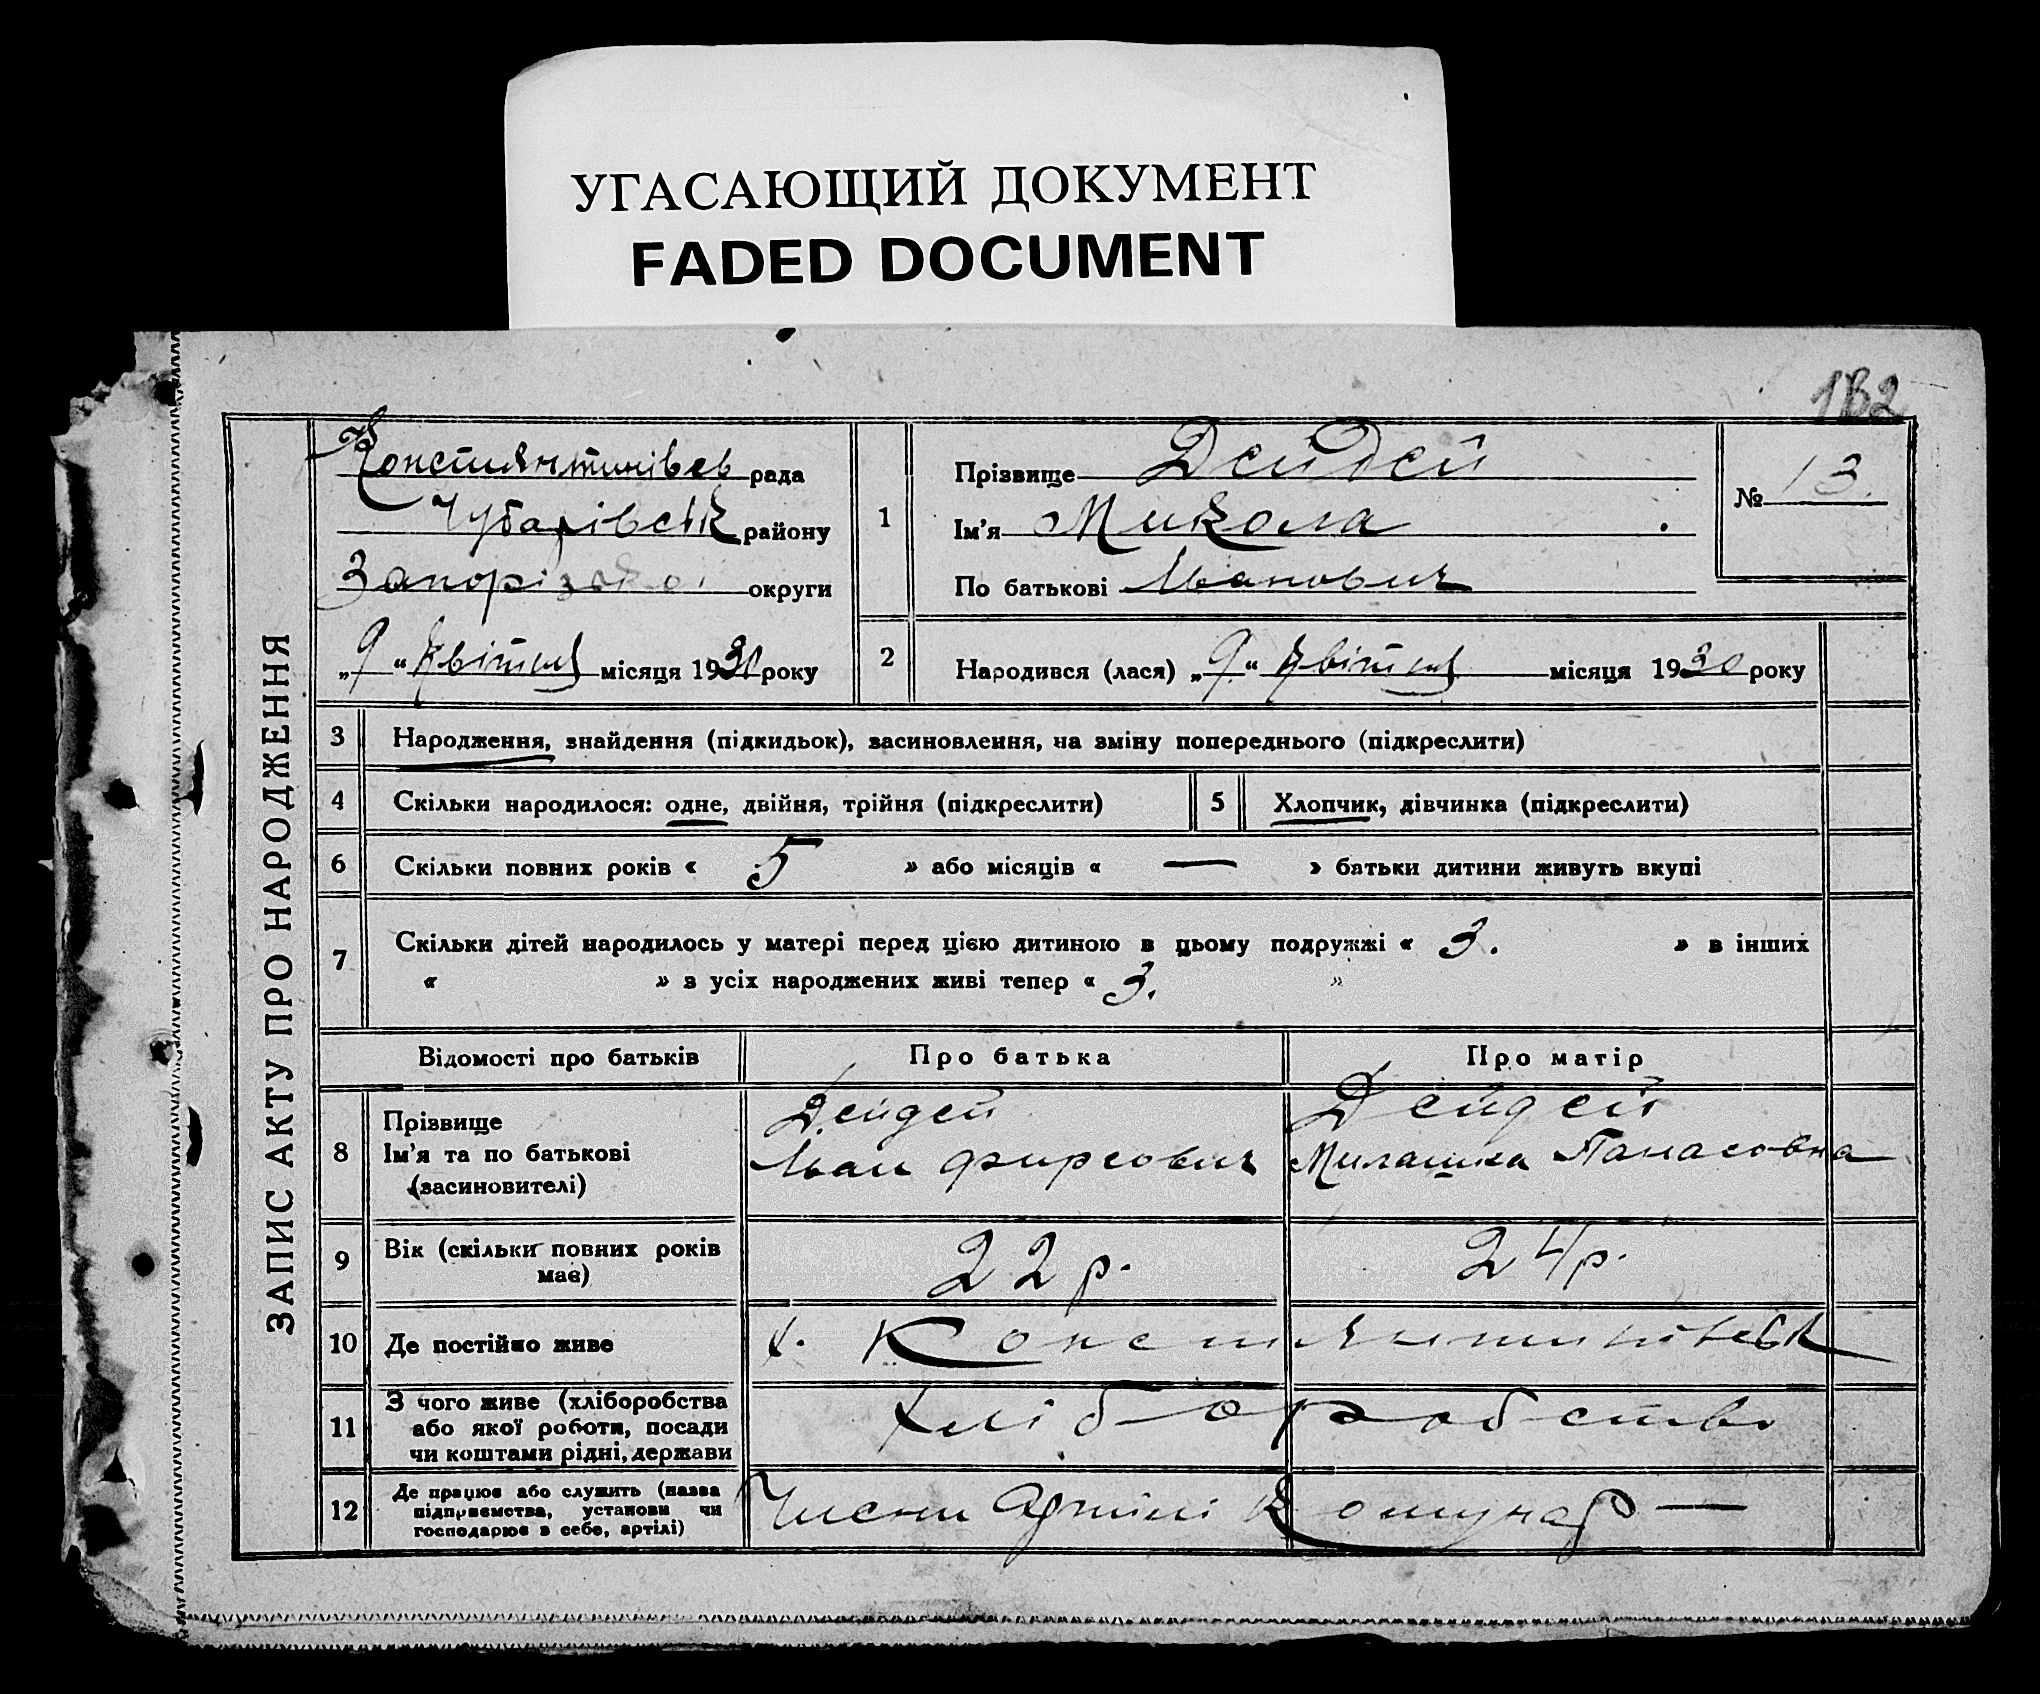 УГАСАЮЩИЙ ДОКУМЕНТ
FADED DOCUMENT
182
ЗАПИС АКТУ ПРО НАРОДЖЕННЯ
Констянтинівсь рада
Чубарівськ району
Запорізької округи
„9“ Квітня місяця 1930 року
1
Прізвище Дейдей
Ім'я Микола
По батькові Иванович
№ 13.
2
Народився (лася) „9“ Квітня місяця 1930 року
3 Народження, знайдення (підкидьок), засиновлення, на зміну попереднього (підкреслити)
4 Скільки народилося: одне, двійня, трійня (підкреслити) 5 Хлопчик, дівчинка (підкреслити)
6 Скільки повних років « 5 » або місяців « — » батьки дитини живуть вкупі
7 Скільки дітей народилось у матері перед цією дитиною в цьому подружжі « 3. » в інших
« » з усіх народжених живі тепер « 3. »
Відомості про батьків Про батька Про матір
8 Прізвище
Ім'я та по батькові
(засиновителі)
Дейдей
Иван Фирсович
Дейдей
Милашка Панасовна
9 Вік (скільки повних років
має)
22 р. 24 р.
10 Де постійно живе х. Констянтинівськ
11 З чого живе (хліборобства
або якої роботи, посади
чи коштами рідні, держави
Хліборобство
12 Де працює або служить (назва
підприємства, установи чи
господарює в себе, артілі)
Члени Артілі Комунар —